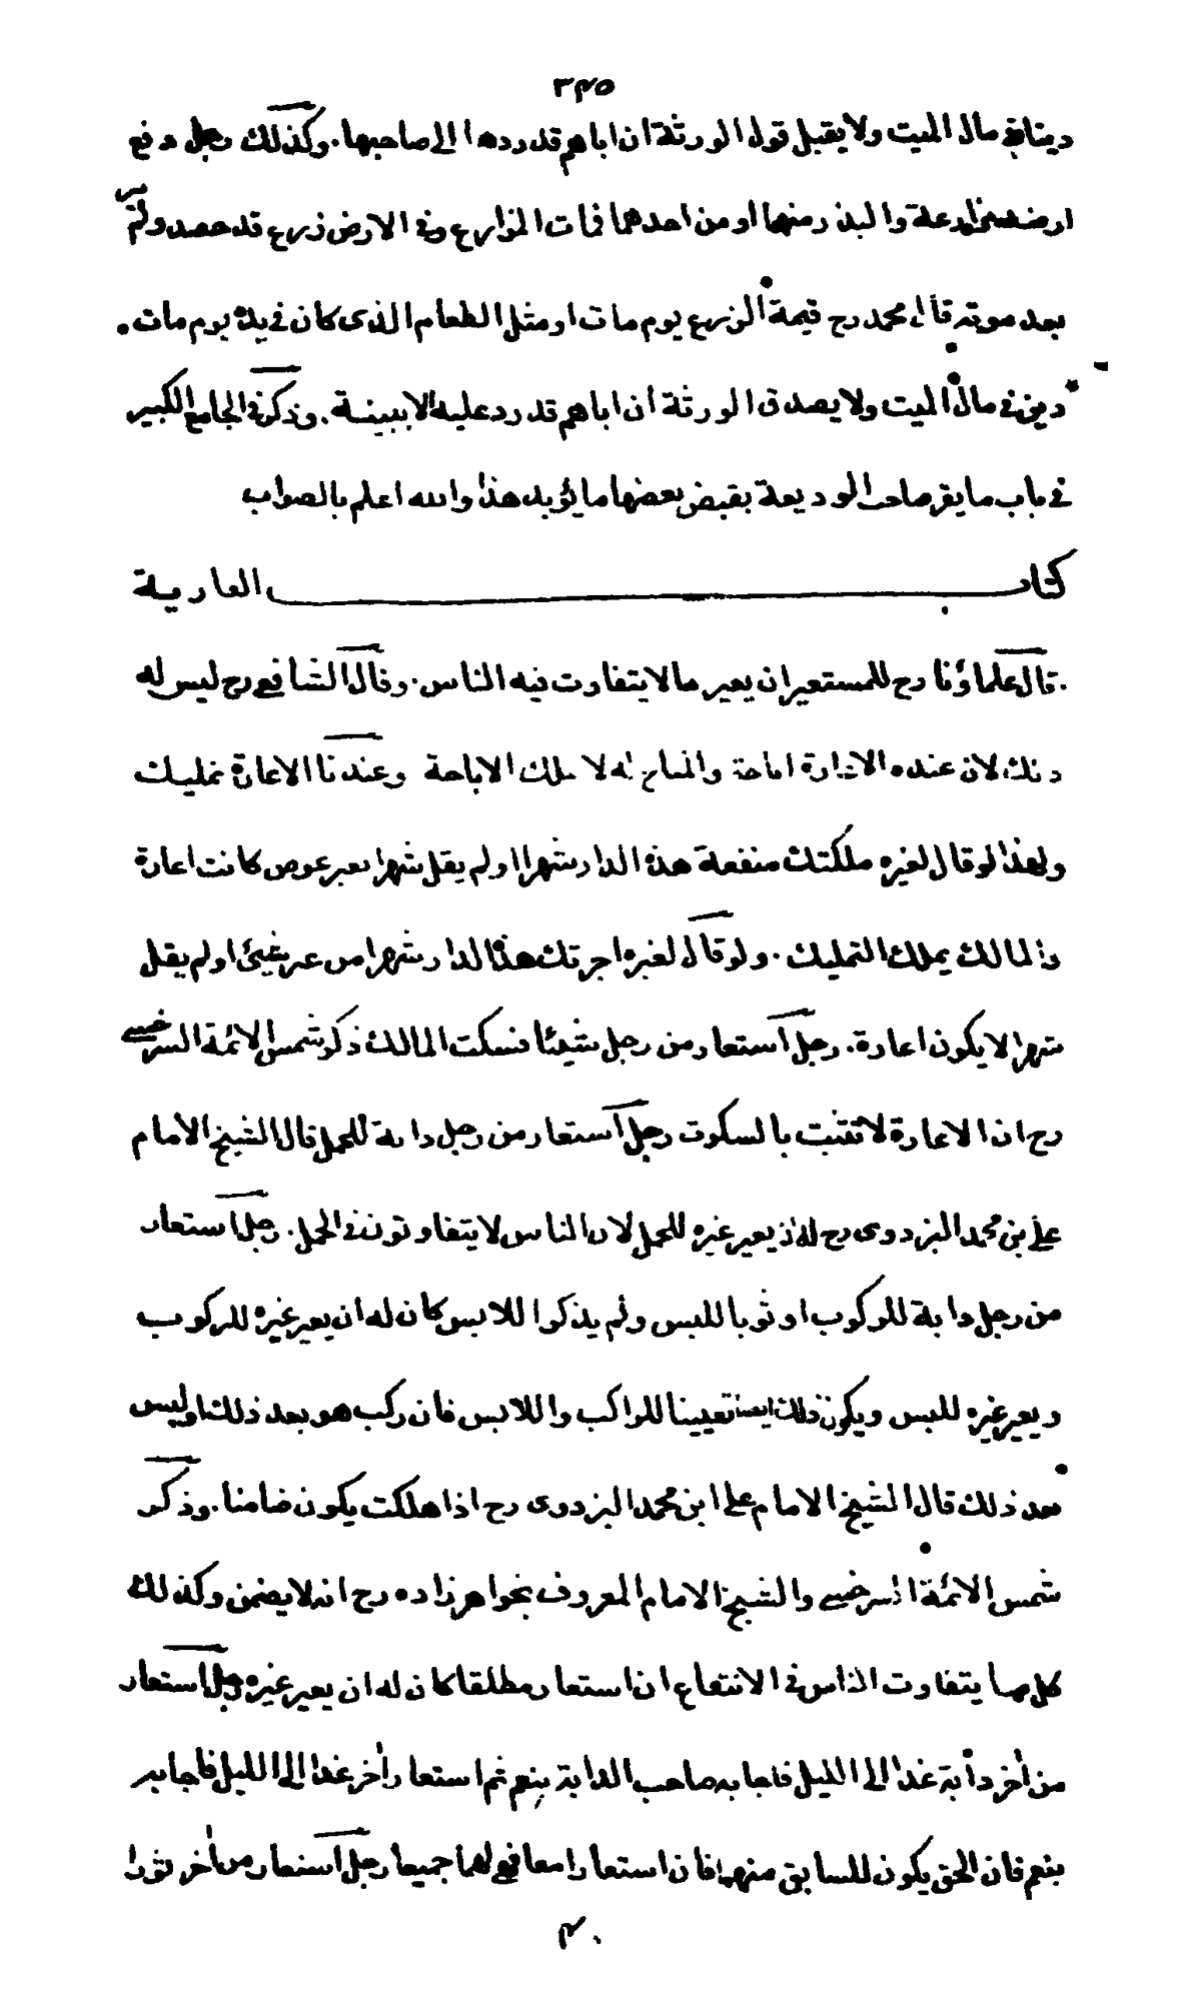 ٣٤٥
دينا في مال الميت ولا يقبل قول الورثة ان اباهم قد ردها الى صاحبها . وكذلك رجل دفع
ارضه مزارعة والبذر منهما او من احدهما فمات المزارع وفى الارض زرع قد حصد ولم
بعد موته قال محمد رح قيمة الزرع يوم مات او مثل الطعام الذى كان في يده يوم مات .
دين في مال الميت ولا يصدق الورثة ان اباهم قد رد عليه الا ببينة . وذكر في الجامع الكبير
في باب ما يقر صاحب الوديعة بقبض بعضها ما يؤيد هذا والله اعلم بالصواب
كتاب العارية
. قال علماؤنا رح للمستعير ان يعير مالا يتفاوت فيه الناس . وقال الشافعي رح ليس له
ذلك لان عنده الاعارة اباحة والمباح له لا يملك الاباحة وعندنا الاعارة تمليك
ولهذا لو قال لغيره ملكتك منفعة هذه الدار شهرا او لم يقل شهرا بغير عوض كانت اعارة
والمالك يملك التمليك . ولو قال لغيره اجرتك هذه الدار شهرا من غير شيئ او لم يقل
شهرا لا يكون اعارة . رجل استعار من رجل شيئا فسكت المالك ذكر شمس الائمة السرخسي
رح ان الاعارة لا تثبت بالسكوت رجل استعار من رجل دابة للحمل قال الشيخ الامام
علي بن محمد البزدوى رح له ان يعير غيره للحمل لان الناس لا يتفاوتون في الحمل . رجل استعار
من رجل دابة للركوب او ثوبا للبس ولم يذكر اللابس كان له ان يعير غيره للركوب
و يعير غيره للبس ويكون ذلك ايضا تعيينا للراكب واللابس فان ركب هو بعد ذلك او لبس
بعد ذلك قال الشيخ الامام على ابن محمد البزدوى رح اذا هلكت يكون ضامنا . وذكر
شمس الائمة السرخسي والشيخ الامام المعروف بخواهرزاده رح انه لا يضمن وكذلك
كل ما يتفاوت الناس في الانتفاع ان استعار مطلقا كان له ان يعير غيره رجل استعار
من اخر دابة غدا الى الليل فاجابه صاحب الدابة بنعم ثم استعار اخر غدا الى الليل فاجابه
بنعم فان الحق يكون للسابق منهما فان استعارا معا فهي لهما جميعا رجل استعار من اخر ثورا
٤٠